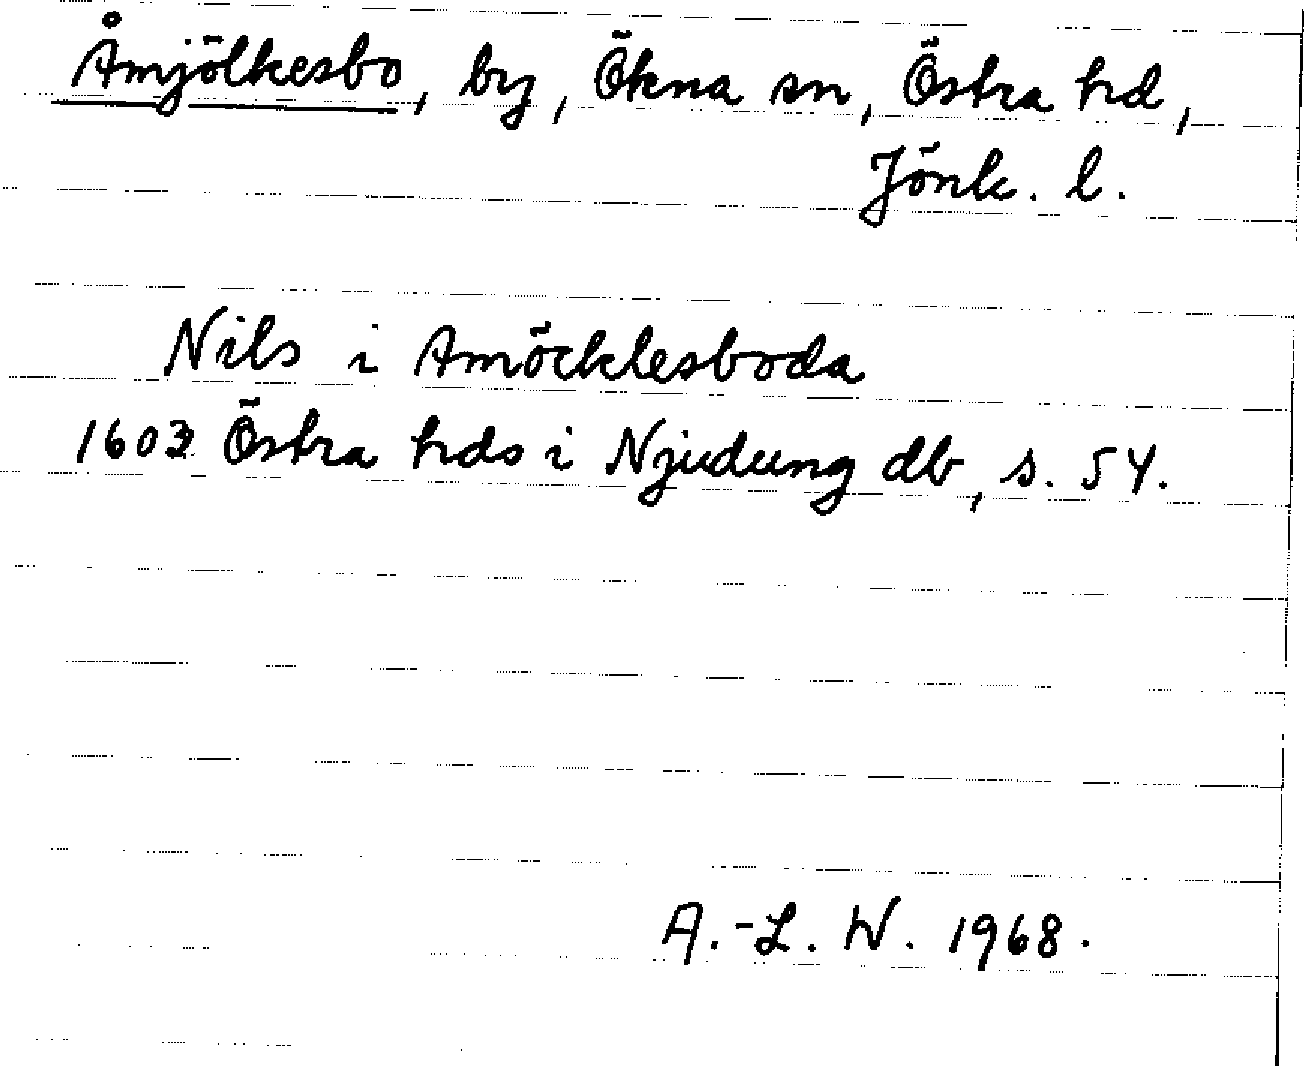 Åmjölkesbo, by, Ökna sn, Östra hd,
Jönk. l.
Nils i Amöcklesboda
1603 Östra hds i Njudung db, s. 54.
A.-L. W. 1968.